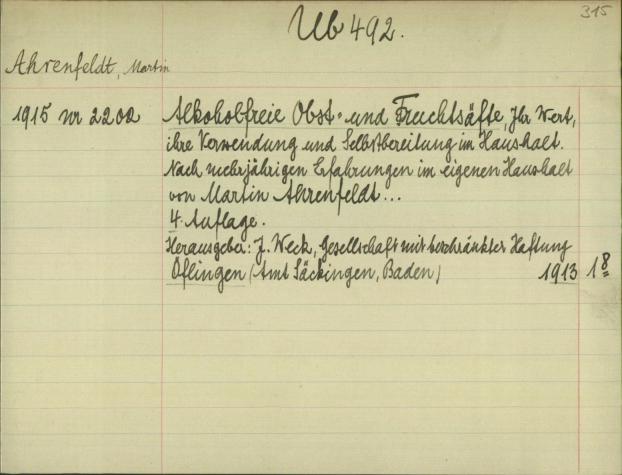 315
Ub 492.
Ahrenfeldt, Martin
1915 nr 2202 Alkoholfreie Obst- und Fruchtsäfte, Ihr Wert,
ihre Verwendung und Selbstbereitung im Haushalt.
Nach mehrjährigen Erfahrungen im eigenen Haushalt
von Martin Ahrenfeldt...
4. Auflage.
Herausgeber: J. Weck, Gesellschaft mit beschränkter Haftung
Öflingen (Amt Säckingen, Baden) 1913 18